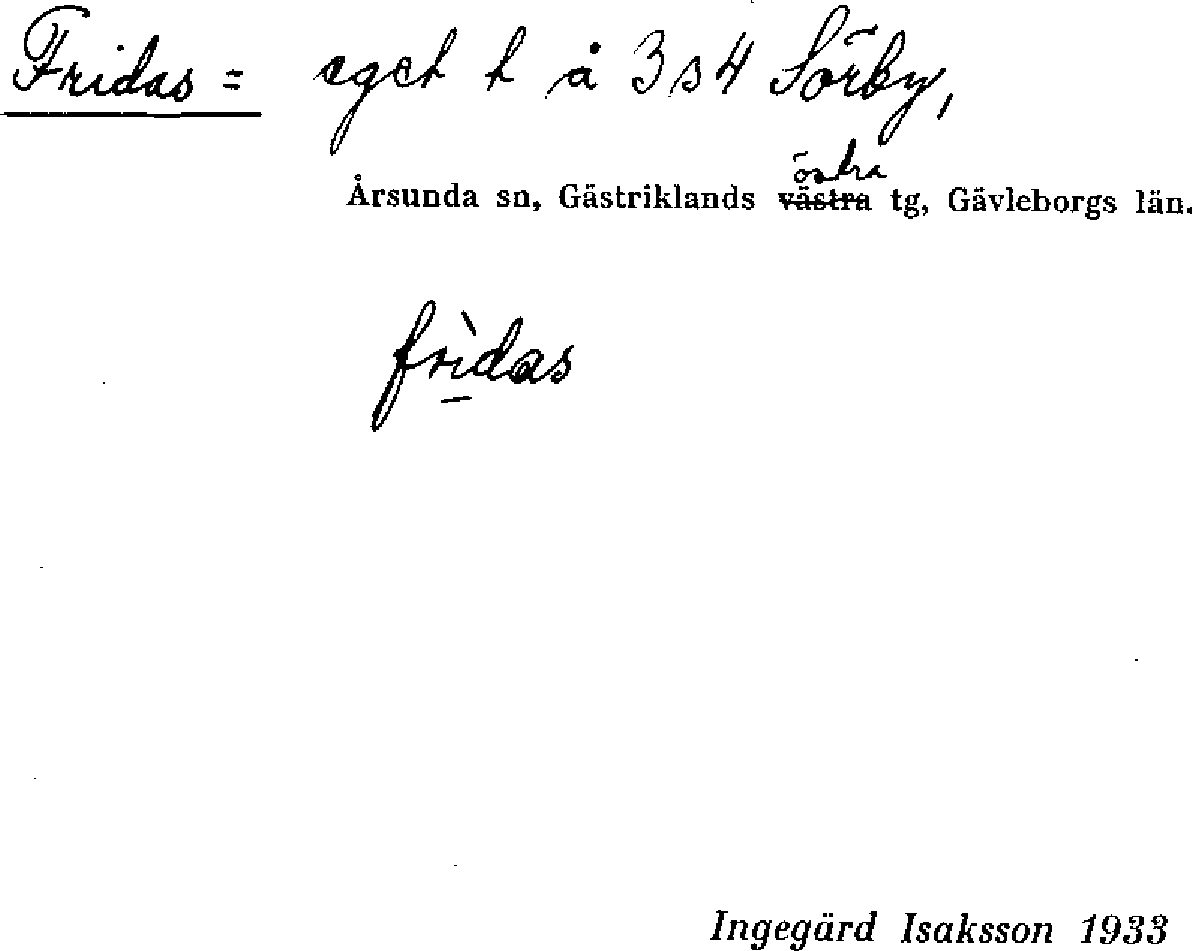 Fridas = eget t å 3 s 4 Sörby,
östra
Årsunda sn, Gästriklands västra tg, Gävleborgs län.
frìdas
Ingegärd Isaksson 1933